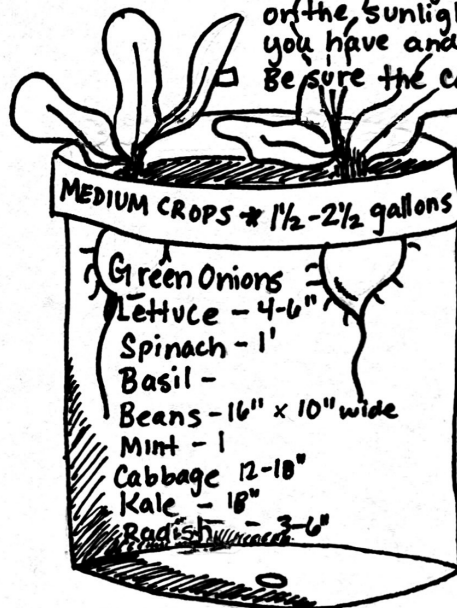 on the, sunligh
you have and
Be sure the c
MEDIUM CROPS * 1½ - 2½ gallons
Green Onions
Lettuce - 4-6"
Spinach - 1'
Basil -
Beans - 16" x 10" wide
Mint - 1
Cabbage 12-18"
Kale - 18"
Radish - 3-6"